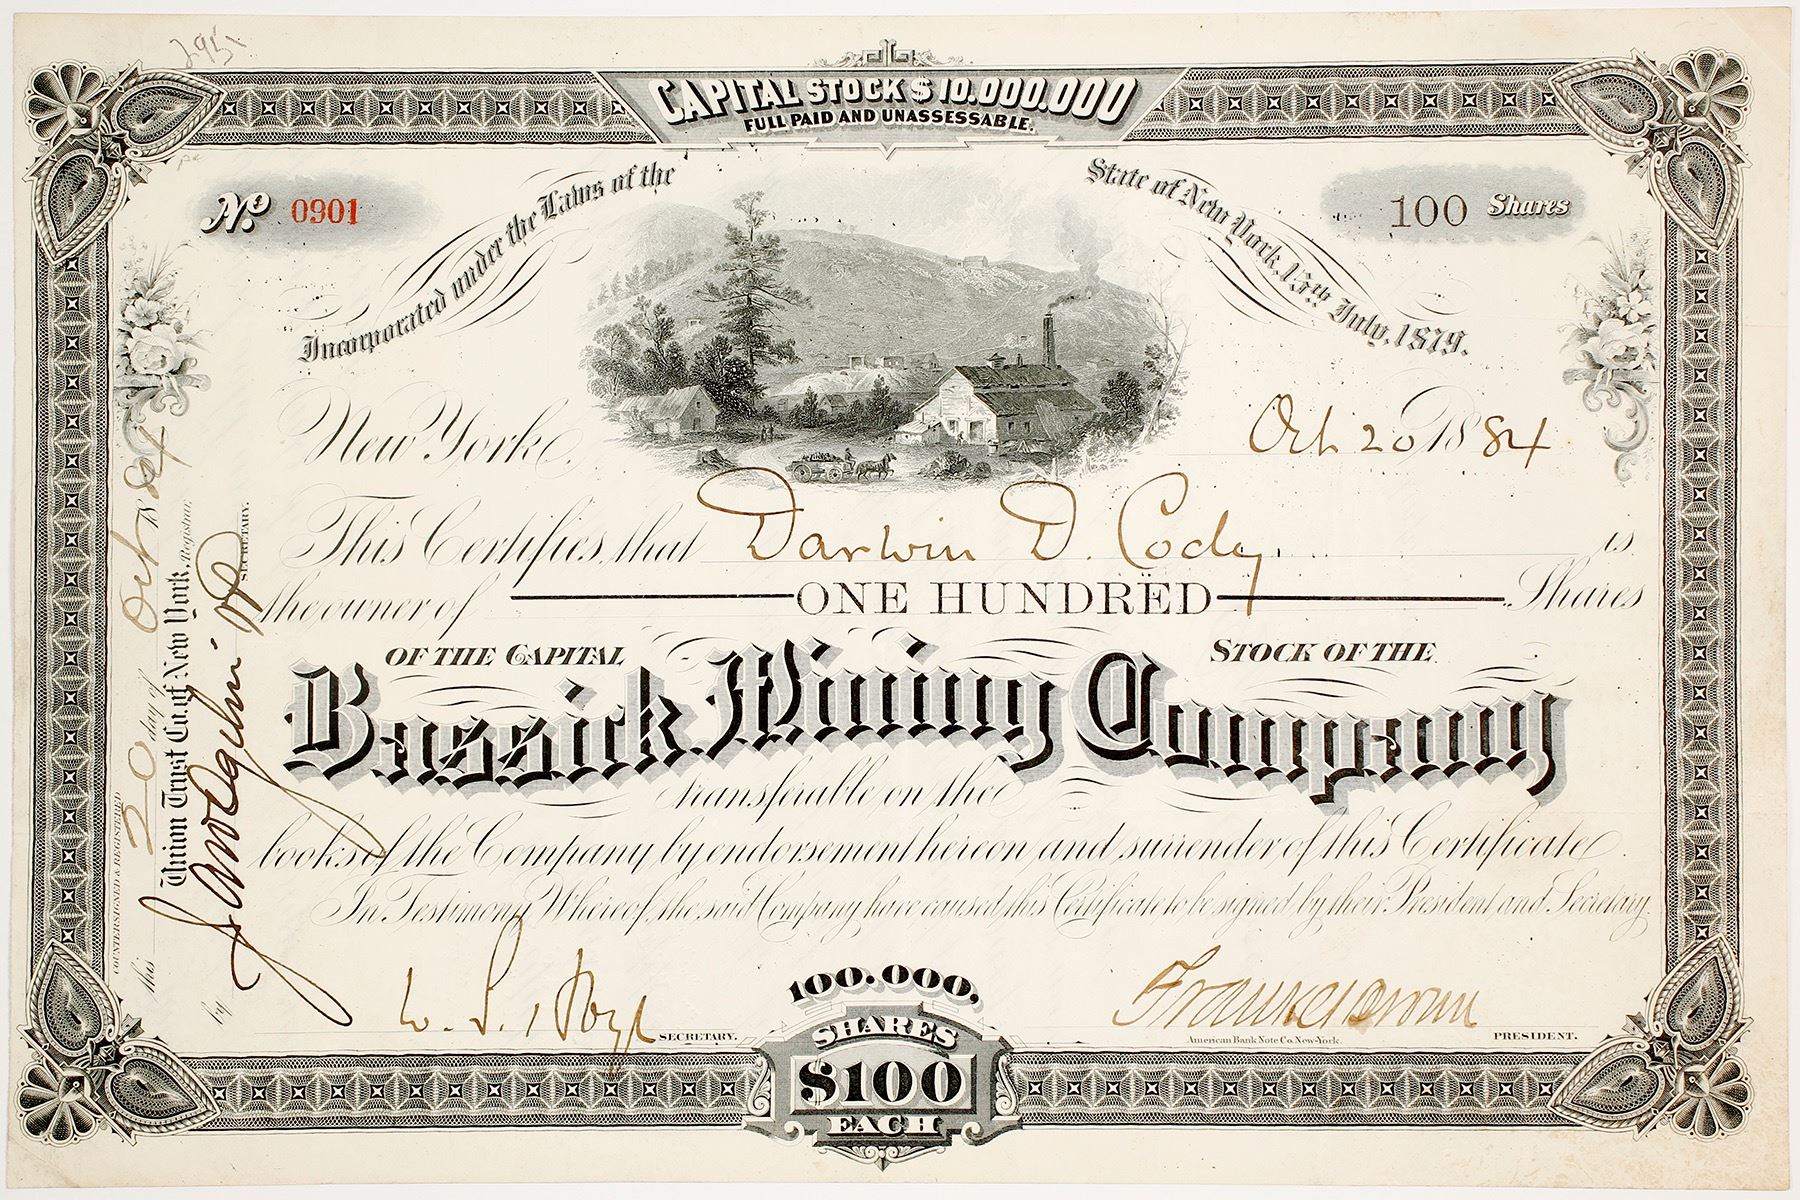 CAPITAL STOCK $10.000.000
FULL PAID AND UNASSESSABLE.
No. 0901
Incorporated under the Laws of the
State of New York, 15th July, 1879.
100 Shares
New York, Oct 20 1884
This Certifies, that Darwin D. Cody is
the owner of ONE HUNDRED Shares
OF THE CAPITAL STOCK OF THE
Bassick Mining Company
transferable on the
books of the Company by endorsement hereon and surrender of this Certificate.
In Testimony Whereof, the said Company have caused this Certificate to be signed by their President and Secretary.
W. S. Hoyt SECRETARY.
PRESIDENT.
American Bank Note Co. New-York.
100.000.
SHARES
$100
EACH
COUNTERSIGNED & REGISTERED
this 20 day of Oct 1884
Union Trust Co. of New York, Registrar,
by
SECRETARY.